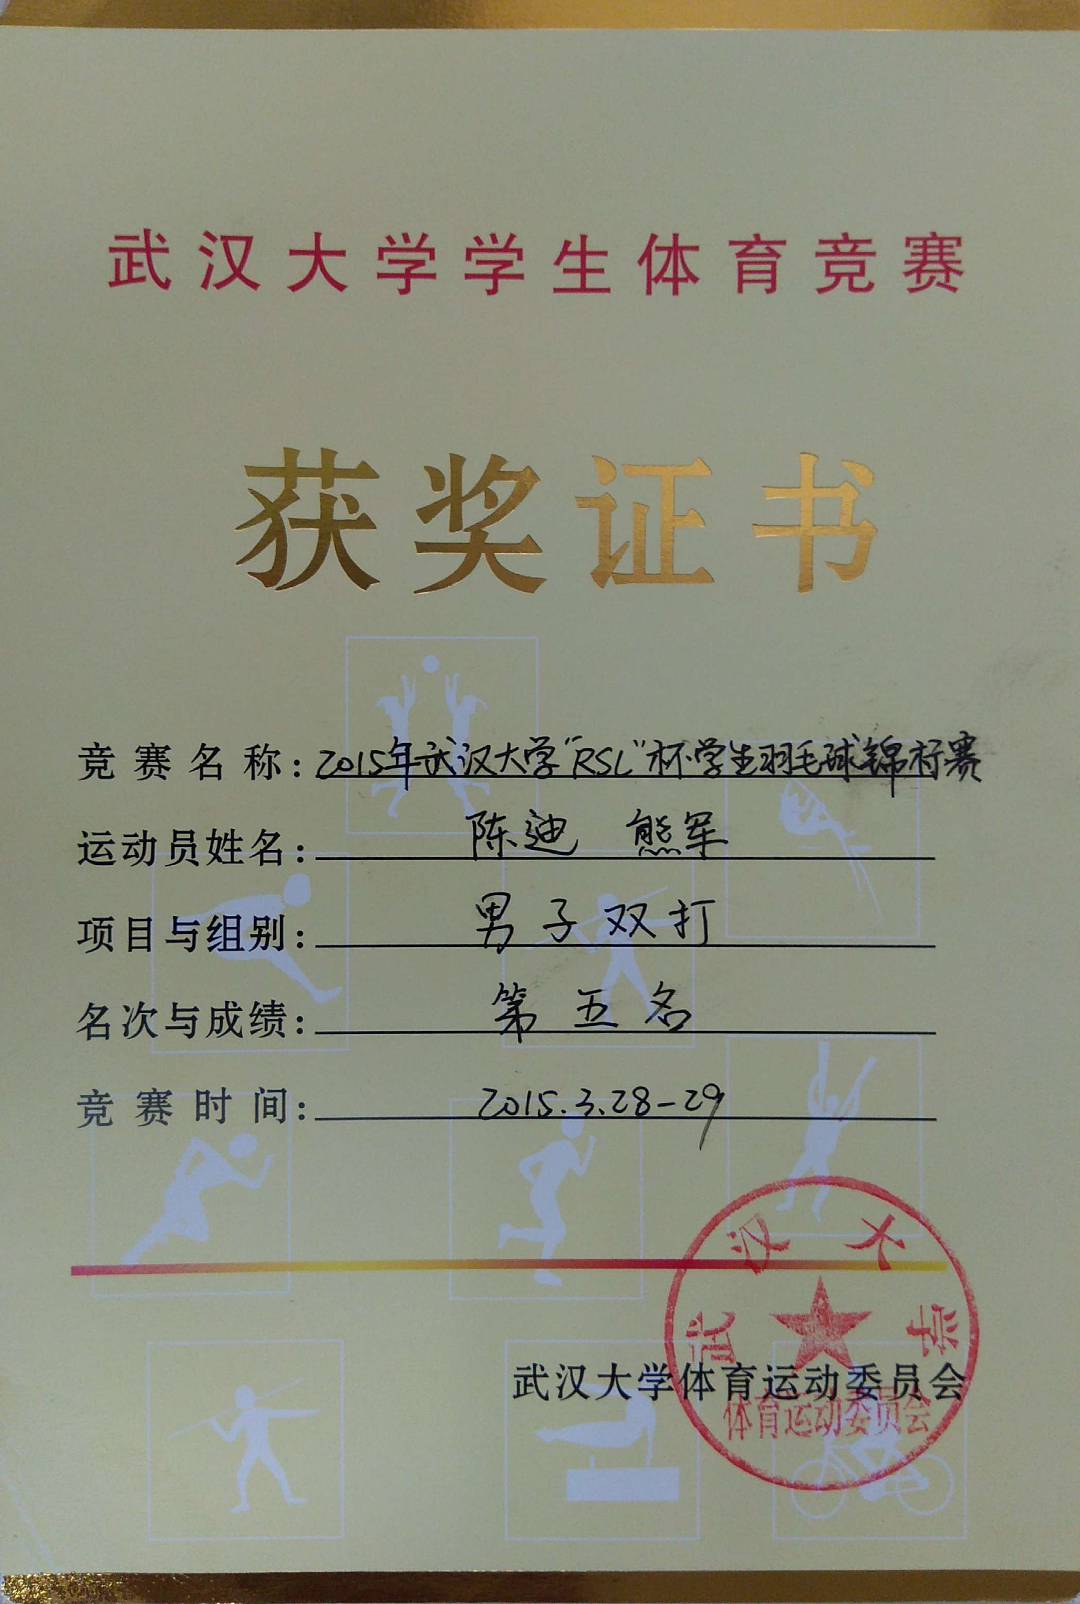 武汉大学学生体育竞赛
获奖证书
竞赛名称：2015年武汉大学“RSL”杯学生羽毛球锦标赛
运动员姓名：陈迪 熊军
项目与组别：男子双打
名次与成绩：第五名
竞赛时间：2015.3.28-29
武汉大学
武汉大学体育运动委员会
体育运动委员会